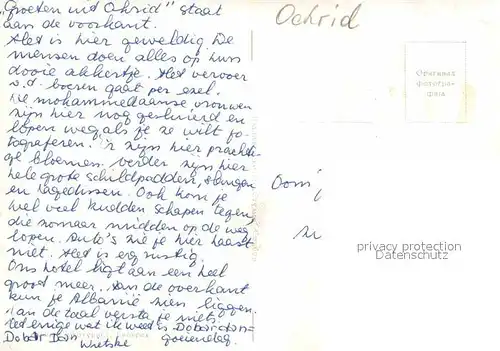 "Groeten uit Ohrid" staat
aan de voorkant.
Het is hier geweldig. De
mensen doen alles op hun
dooie akkertje. Het vervoer
v.d. boeren gaat per ezel.
De mohammedaanse vrouwen
zijn hier nog gesluierd en
lopen weg als je ze wilt fo-
tograferen. 'r zijn hier prachti-
ge bloemen verder zijn hier
hele grote schildpadden, slangen
en hagedissen. Ook kom je
wel veel kudden schapen tegen,
die zomaar midden op de weg
lopen. Auto's zie je hier haast
niet. Het is erg rustig.
Ons hotel ligt aan een heel
groot meer. Aan de overkant
kun je Albanië zien liggen.
Van de taal versta je niets.
Het enige wat ik weet is Dobar dan =
goeiendag.
Dobar Dan
Wietske
Ochrid
Оригинал
фотогра-
фија
Oom
privacy protection
Datenschutz